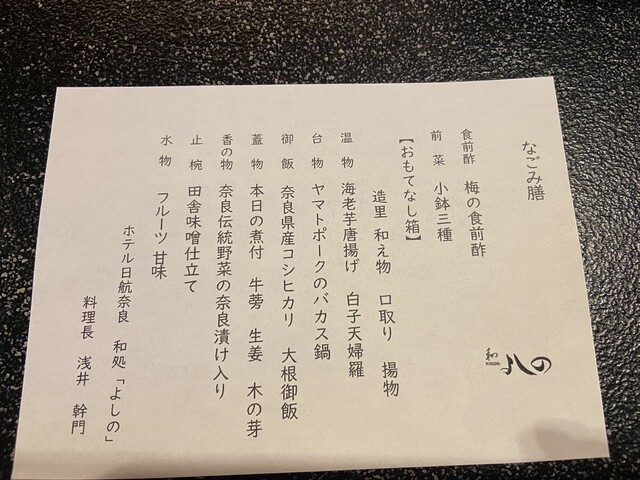 なごみ膳
食前酢 梅の食前酢
前菜 小鉢三種
【おもてなし箱】
造里 和え物 口取り 揚物
温物 海老芋唐揚げ 白子天婦羅
台物 ヤマトポークのバカス鍋
御飯 奈良県産コシヒカリ 大根御飯
蓋物 本日の煮付 牛蒡 生姜 木の芽
香の物 奈良伝統野菜の奈良漬け入り
止椀 田舎味噌仕立て
水物 フルーツ 甘味
ホテル日航奈良 和処「よしの」
料理長 浅井 幹門
和 よしの